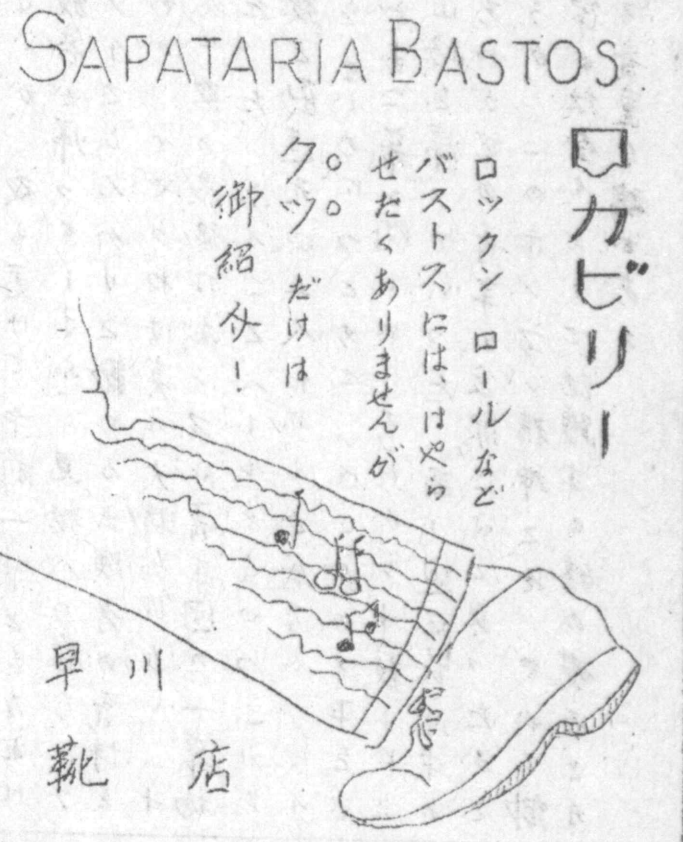 SAPATARIA BASTOS
ロカビリー
ロックン ロールなど
バストスにははやら
せたくありませんが
クツだけは
御紹介!
早川
靴店